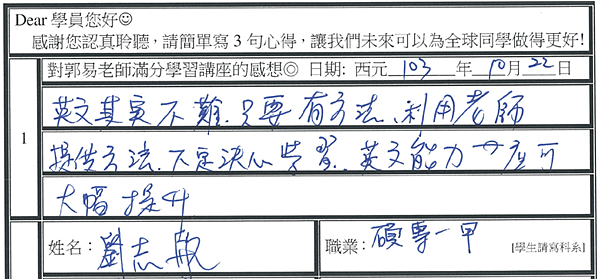 Dear 學員您好☺
感謝您認真聆聽，請簡單寫 3 句心得，讓我們未來可以為全球同學做得更好!
對郭易老師滿分學習講座的感想◎ 日期: 西元 103 年 10 月 22 日
1
英文其實不難.只要有方法、利用老師
提供方法.下定決心學習.英文能力 應可
大幅提升
姓名： 劉志
職業： 碩專一甲 [學生請寫科系]